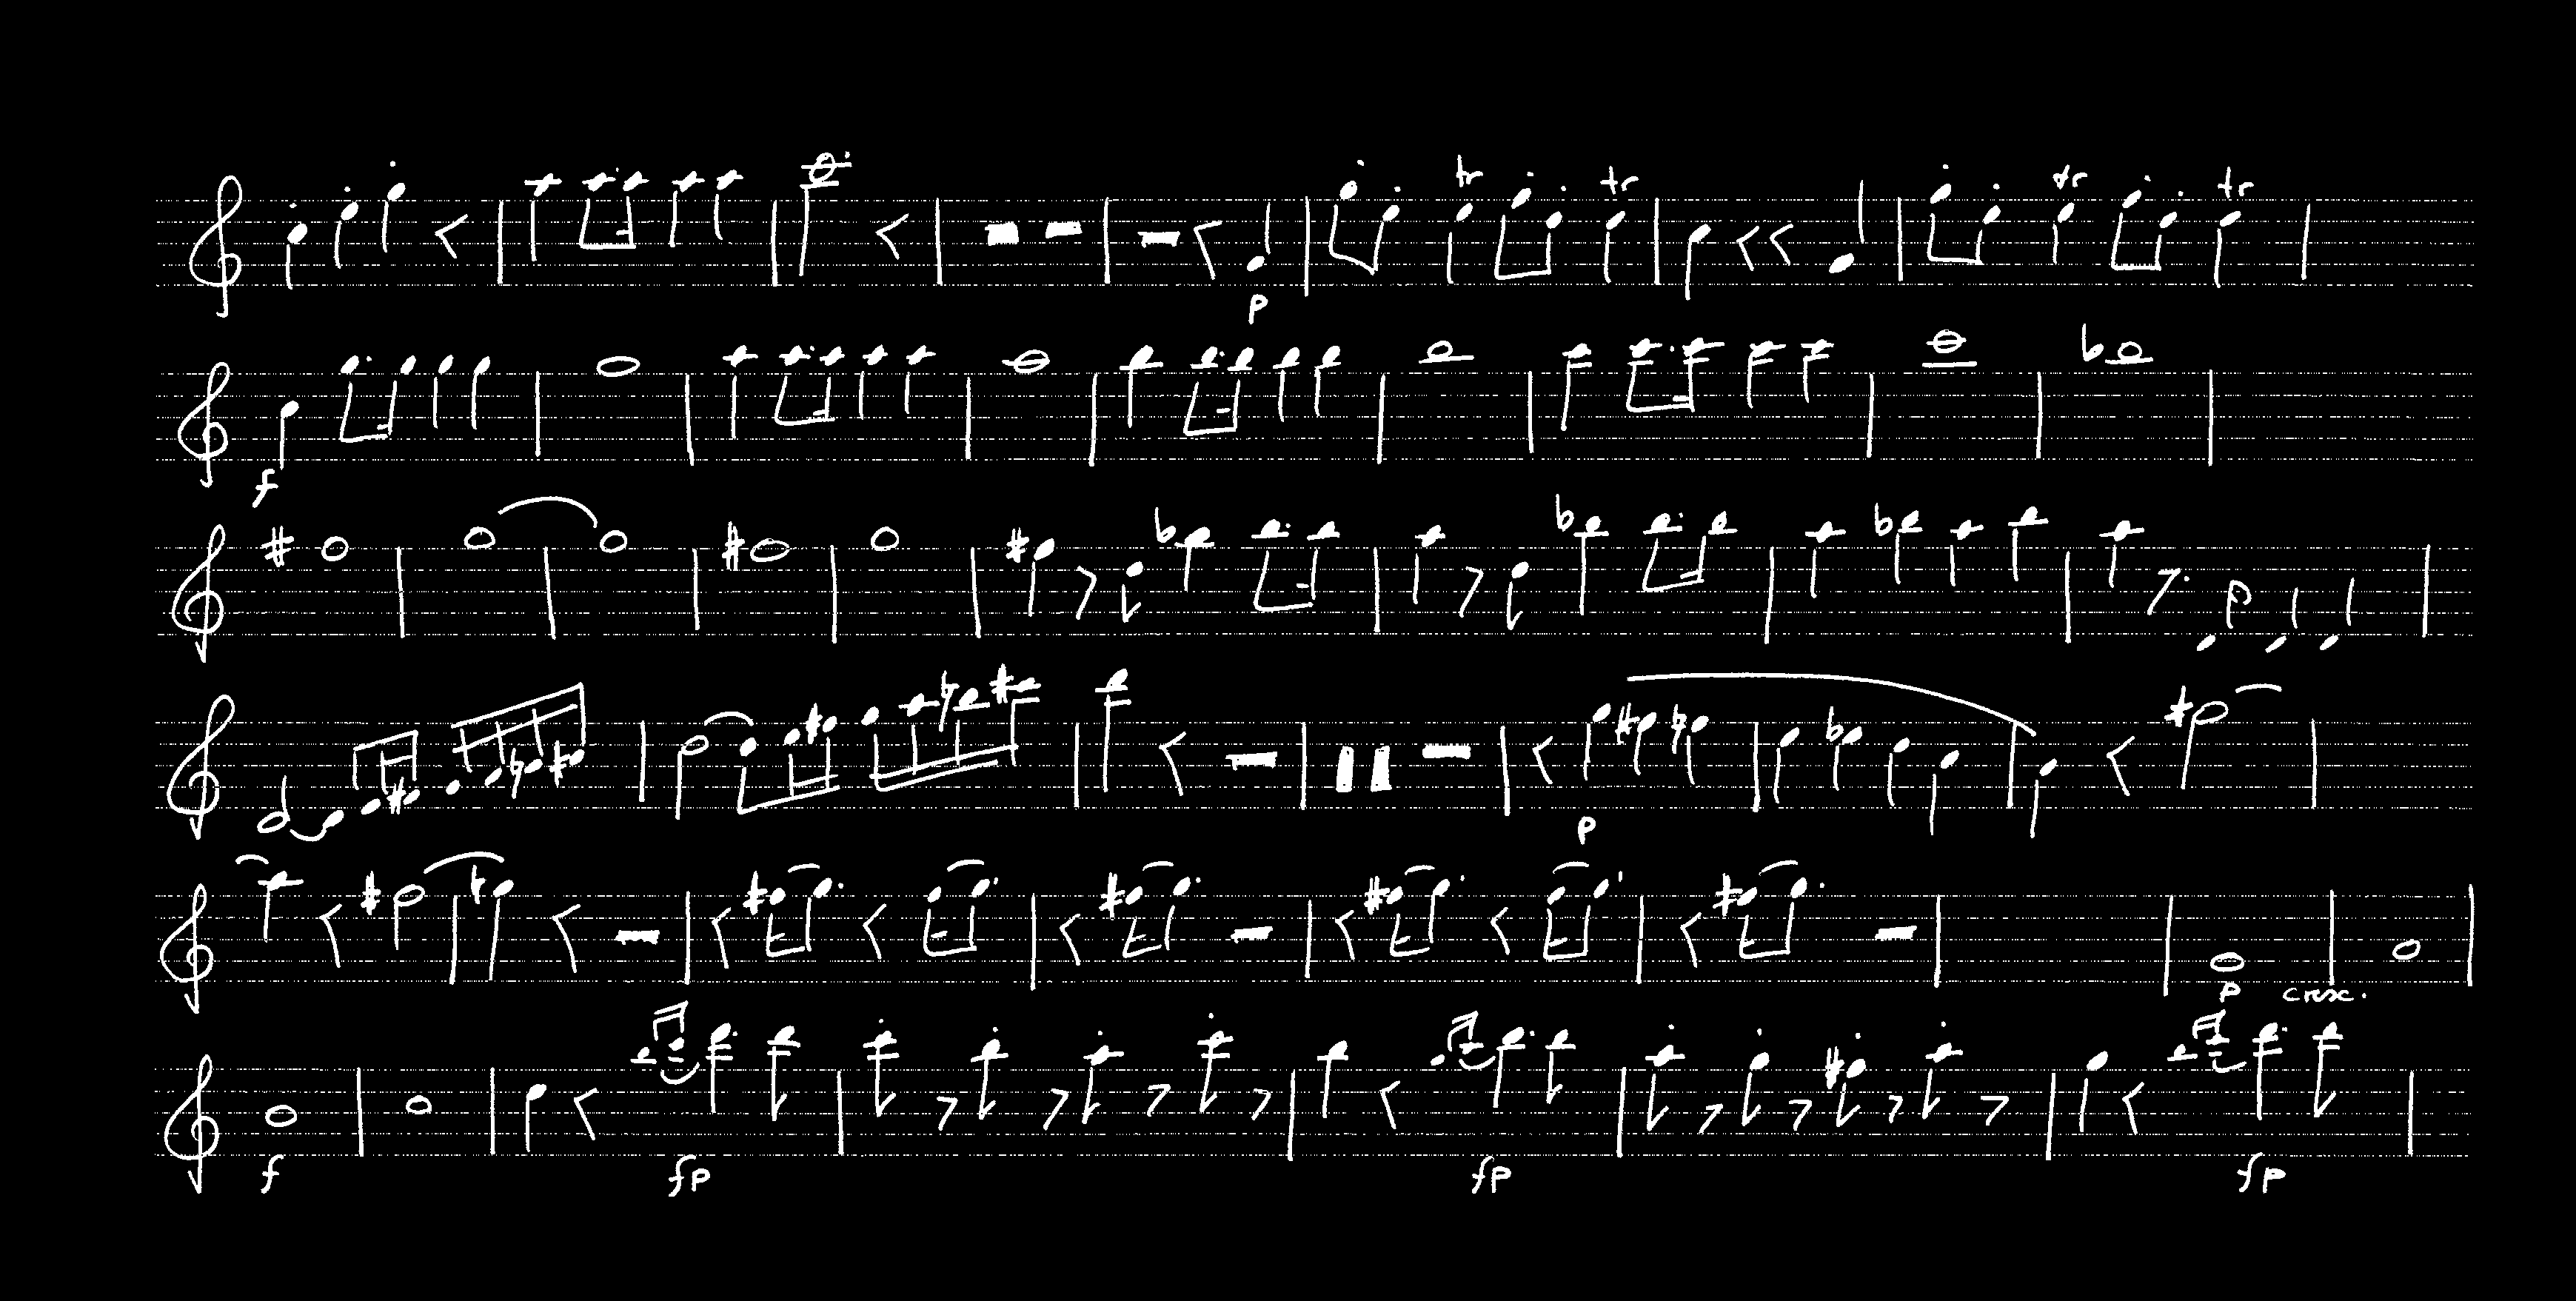 tr tr tr tr
p
f
p
p cresc.
f fp fp fp